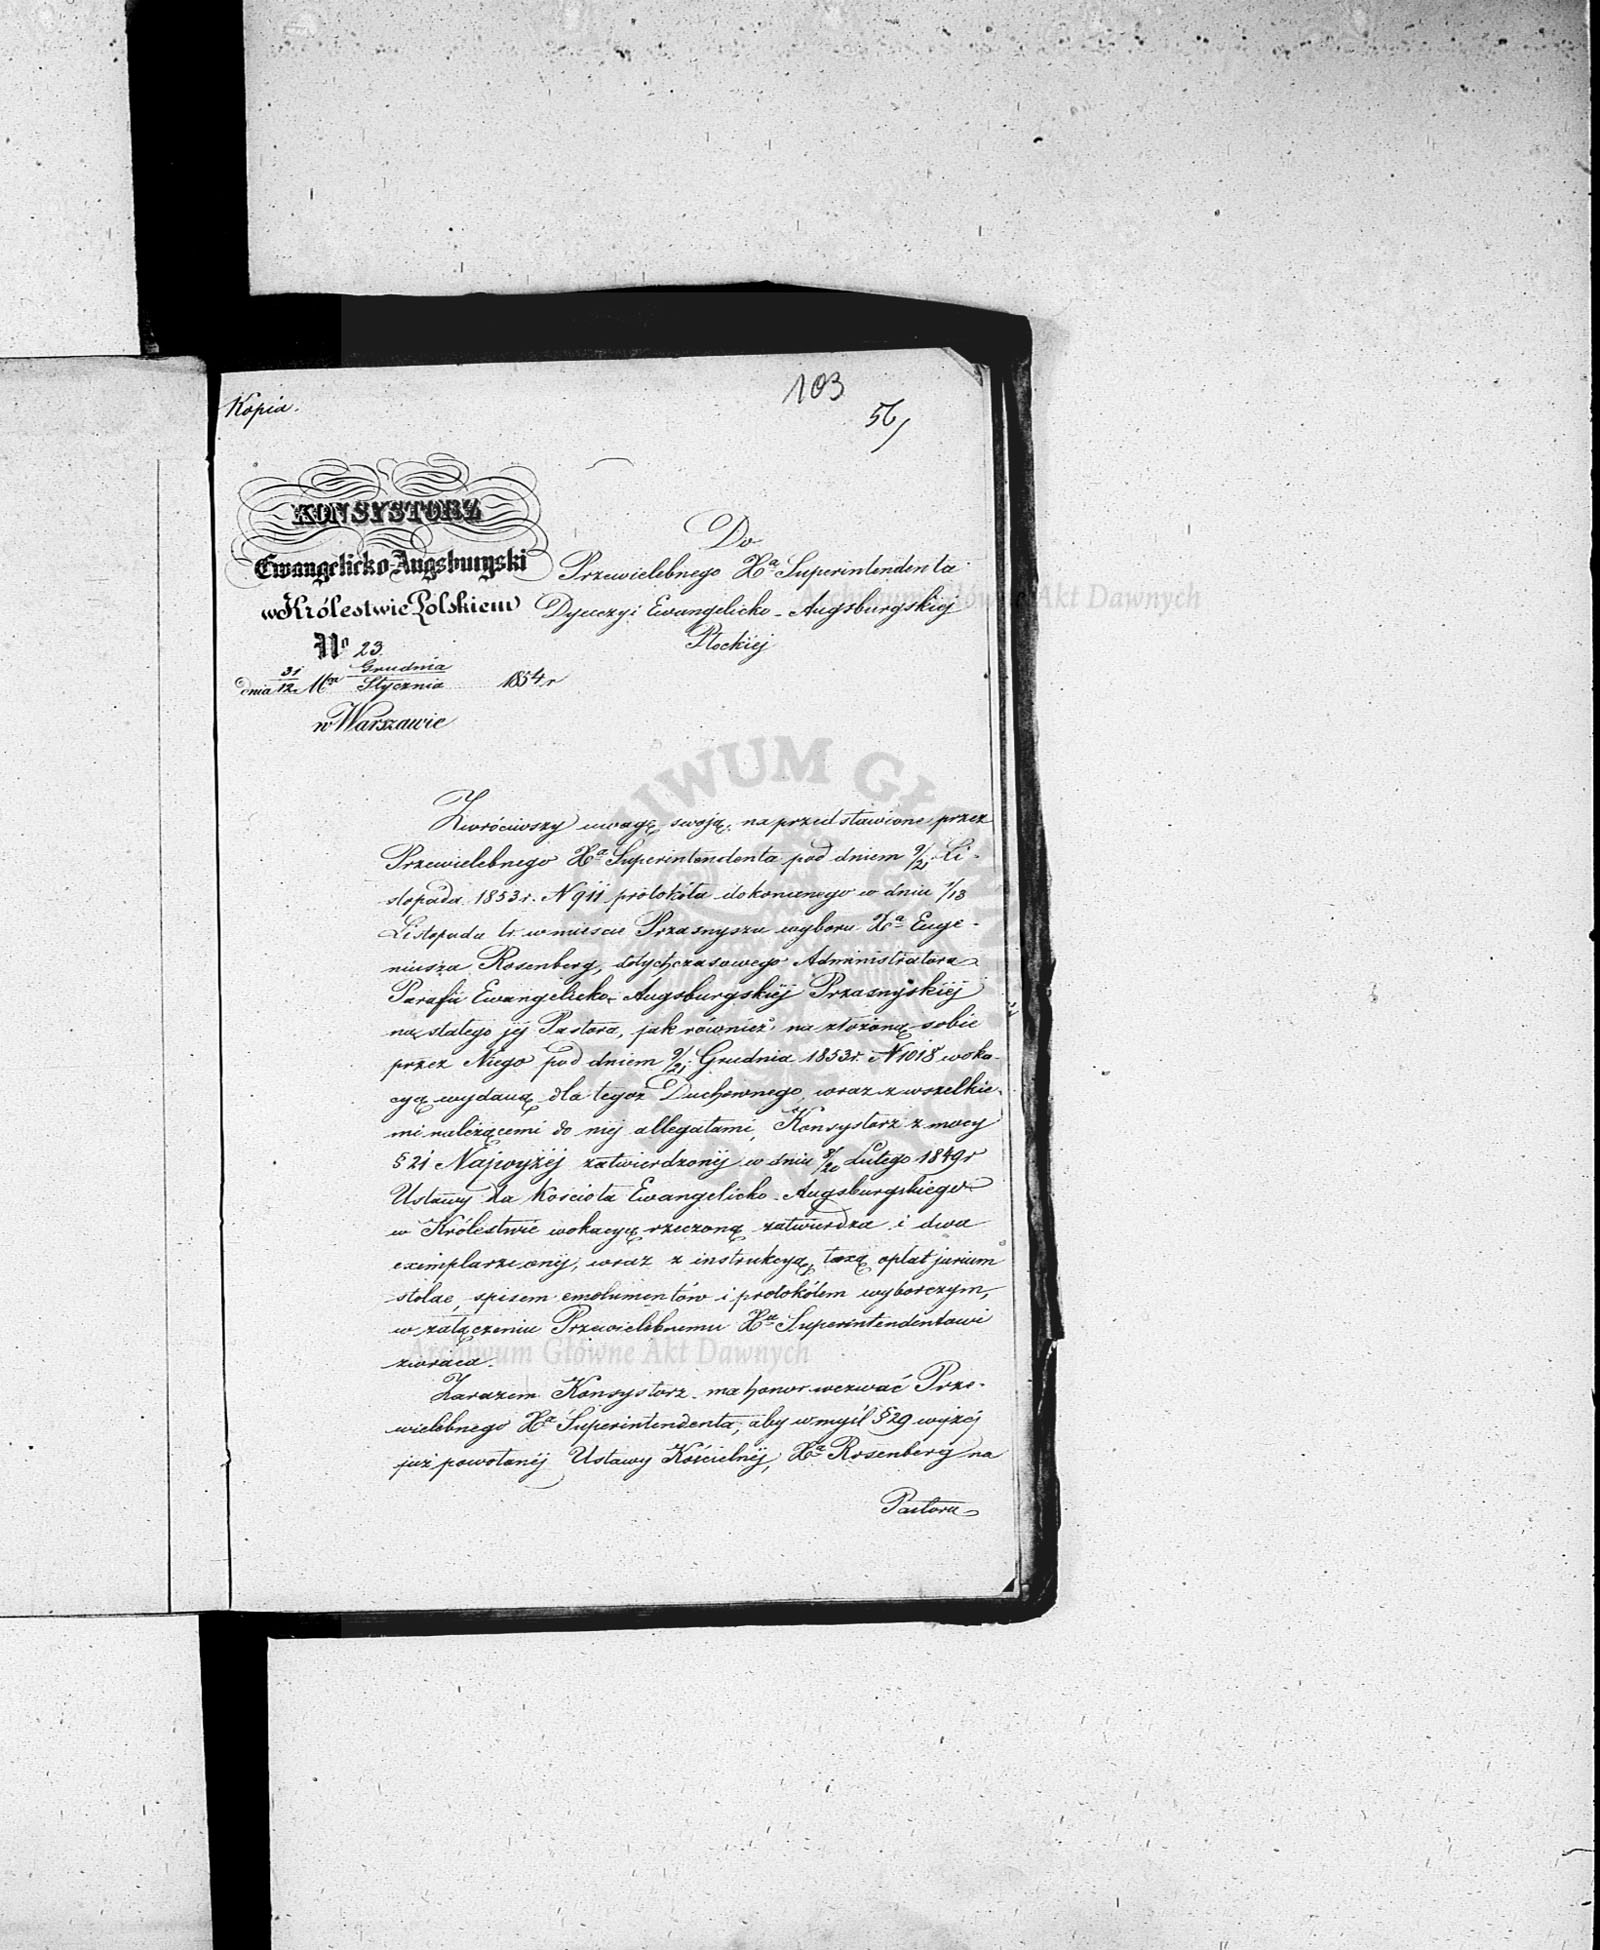 Kopia.
103
56/
KONSYSTORZ
Ewangelicko-Augsburgski
w Królestwie Polskiem
No 23
dnia 31/12 Mca Grudnia/Stycznia 1854 r
w Warszawie
Do
Przewielebnego Xa Superintendenta
Dyecezyi Ewangelicko-Augsburgskiej
Płockiej
Zwróciwszy uwagę swoją, na przedstawione przez
Przewielebnego Xa Superintendenta pod dniem 9/21 Li-
stopada 1853 r. N 911 protokóła dokonanego w dniu 1/13
Listopada tr. w mieście Przasnyszu wyboru Xa Euge-
niusza Rosenberg, dotychczasowego Administratora
Parafii Ewangelicko-Augsburgskiéj Przasnyskiéj
na stałego jej Pastora, jak również na złożoną sobie
przez Niego pod dniem 9/21 Grudnia 1853 r. N 1018 woka-
cyą wydaną dla tegoż Duchownego, wraz z wszelkie-
mi należącemi do niej allegatami, Konsystorz z mocy
§ 21 Najwyżéj zatwierdzonéj w dniu 8/20 Lutego 1849 r
Ustawy dla Kościoła Ewangelicko-Augsburgskiego
w Królestwie wokacyą rzeczoną zatwierdza i dwa
exemplarze onéj, wraz z instrukcyą, taxą opłat jurium
stolae, spisem emolumentów i protokółem wyborczym,
w załączeniu Przewielebnemu Xu Superintendentowi
zwraca.
Zarazem Konsystorz ma honor wezwać Prze-
wielebnego Xa Superintendenta, aby w myśl § 29 wyżéj
już powołanéj Ustawy Kościelnéj, Xa Rosenberg na
Pastora
Archiwum Główne Akt Dawnych
Archiwum Główne Akt Dawnych